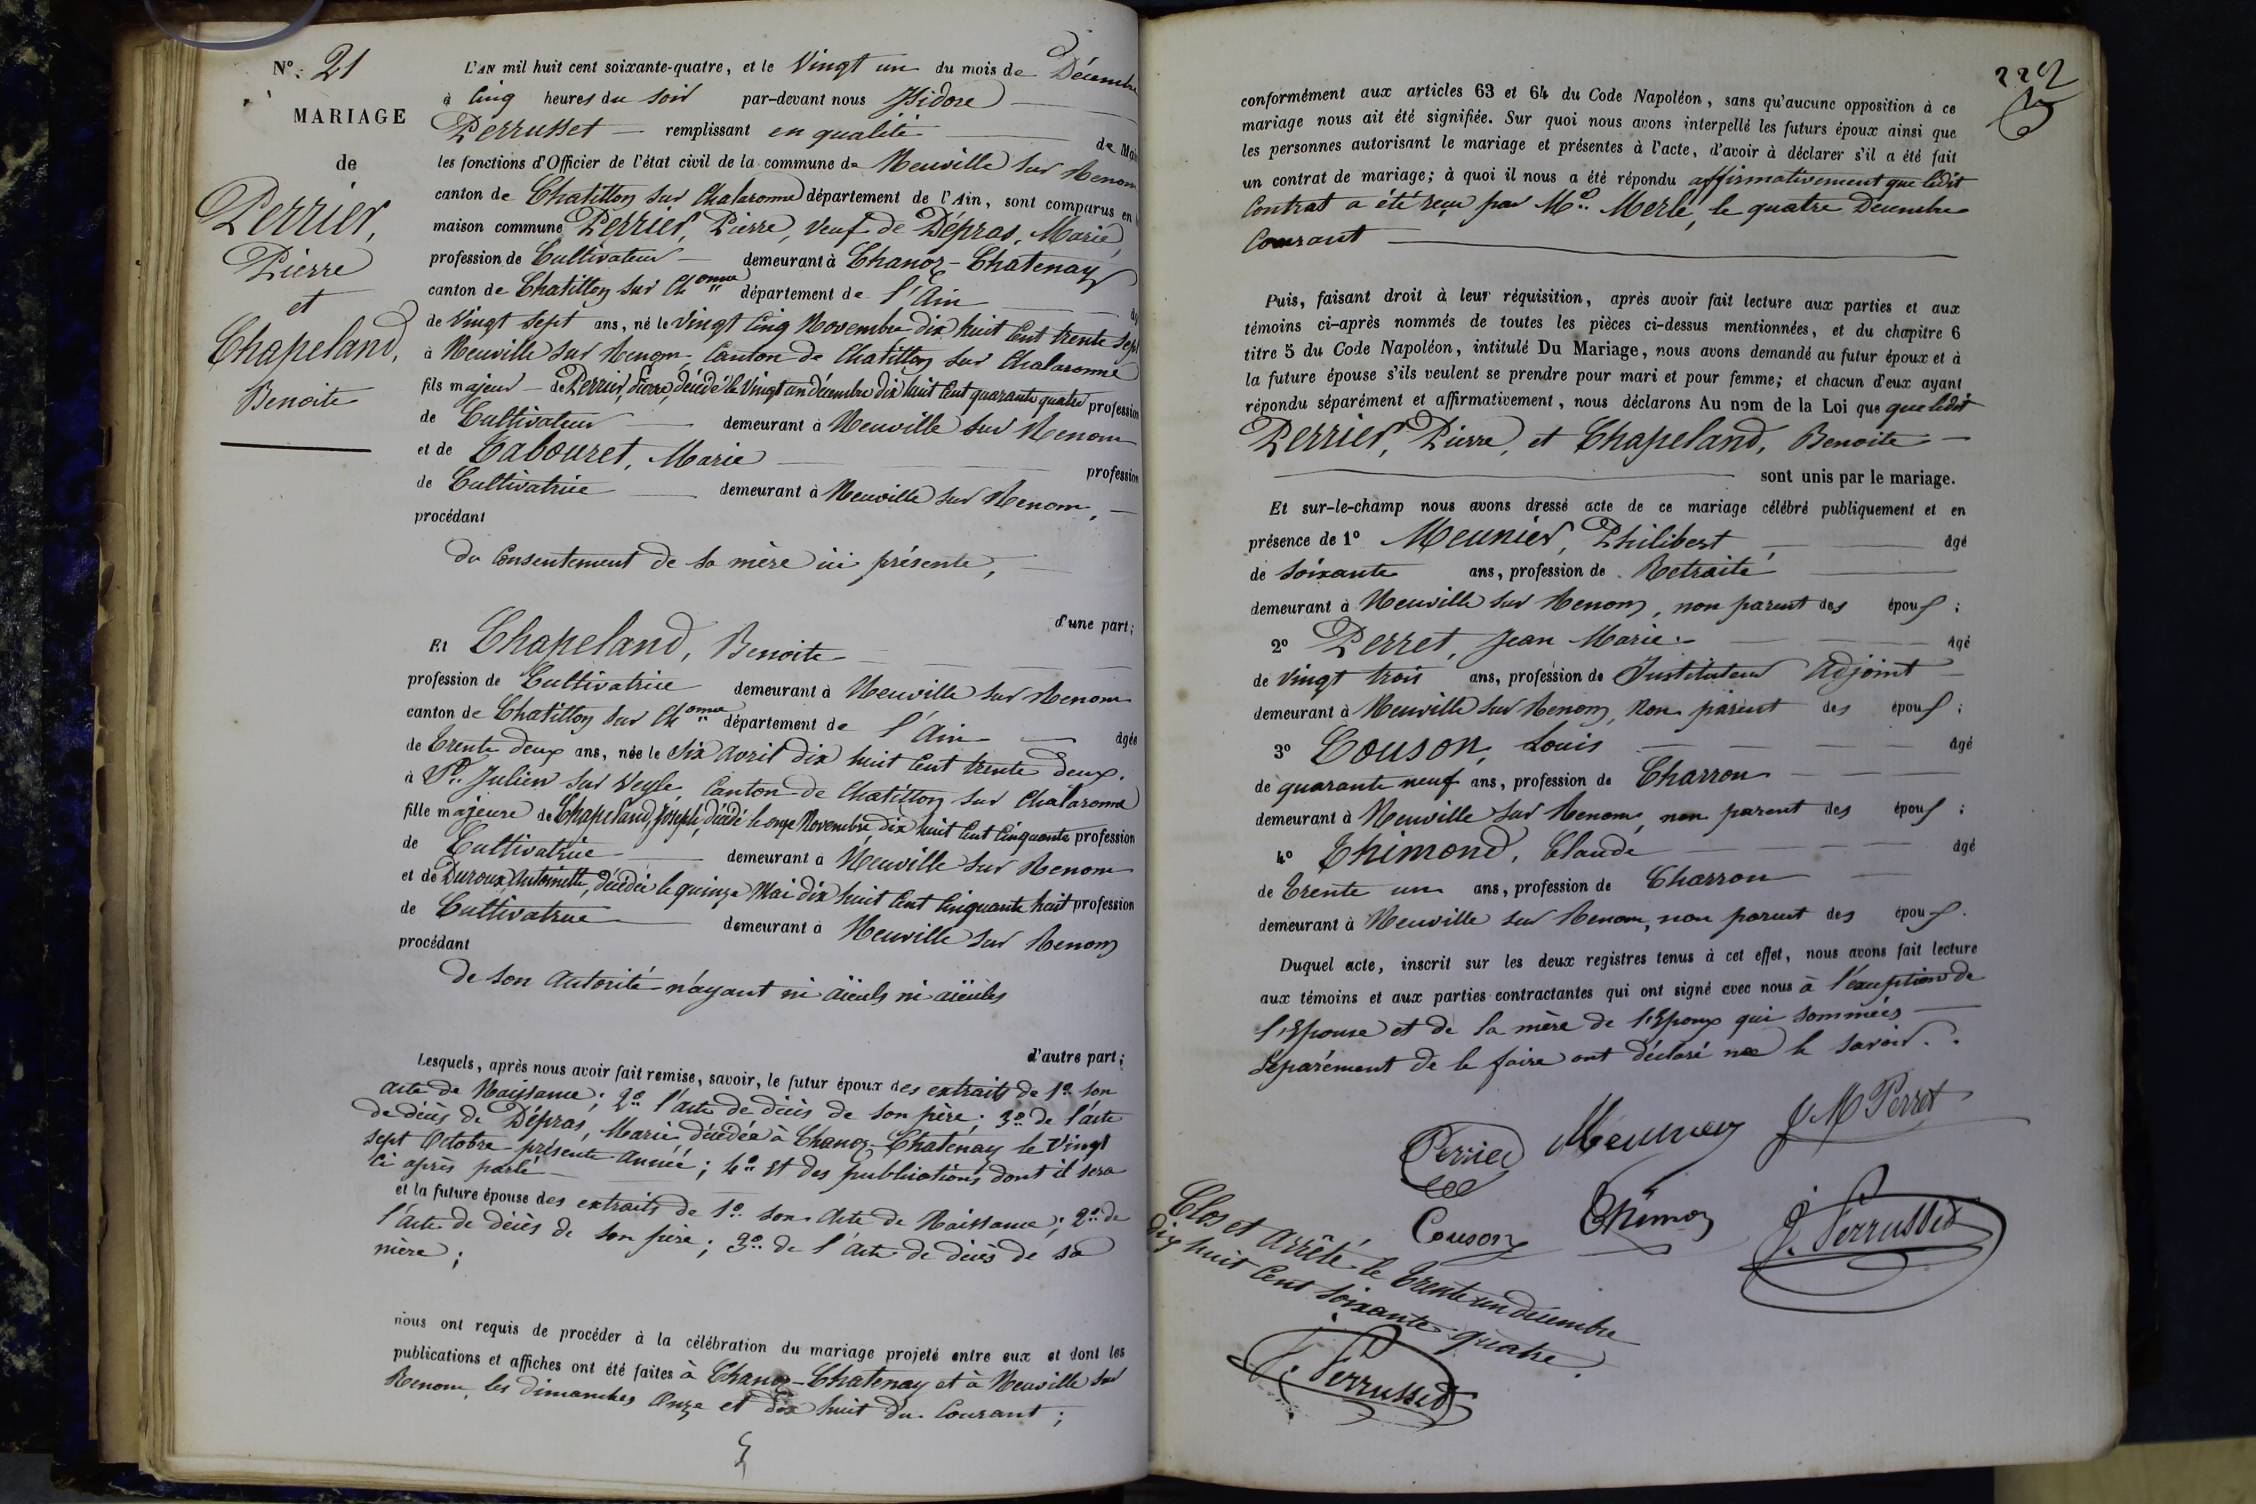 Nº. 21
MARIAGE
de
Perrier,
Pierre
et
Chapeland,
Benoite
L'AN mil huit cent soixante-quatre, et le Vingt un du mois de Décembre
à Cinq heures du soir par-devant nous Isidore
Perrusset remplissant en qualité de Mai
les fonctions d'Officier de l'état civil de la commune de Neuville sur Renom
canton de Chatillon sur Chalaronne département de l'Ain, sont comparus en
maison commune Perrier, Pierre, veuf de Dépras, Marie,
profession de Cultivateur demeurant à Chanoz-Châtenay
canton de Chatillon sur Chonne département de l'Ain
de Vingt sept ans, né le Vingt Cinq Novembre dix huit Cent trente sept
à Neuville sur Renom Canton de Chatillon sur Chalaronne
fils majeur de Perrier, Pierre, décédé le Vingt un décembre dix huit Cent quarante quatre profession
de Cultivateur demeurant à Neuville sur Renom
et de Tabouret, Marie profession
de Cultivatrice demeurant à Neuville sur Renom,
procédant
du Consentement de sa mère ici présente,
d'une part;
Et Chapeland, Benoite
profession de Cultivatrice demeurant à Neuville sur Renom
canton de Chatillon sur Chonne département de l'Ain agée
de Trente deux ans, née le Six avril dix huit Cent trente deux.
à St. Julien sur Veyle Canton de Chatillon sur Chalaronne
fille majeure de Chapeland, Joseph, décédé le onze Novembre dix huit Cent Cinquante profession
de Cultivatrice demeurant à Neuville sur Renom
et de Duroux Antoinette, décédée le quinze Mai dix huit Cent Cinquante huit profession
de Cultivatrice demeurant à Neuville sur Renom
procédant
de son autorité n'ayant ni aïeuls ni aïeules
d'autre part;
Lesquels, après nous avoir fait remise, savoir, le futur époux des extraits de 1º. son
acte de Naissance; 2º. l'acte de décès de son père; 3º. de l'acte
de décès de Dépras, Marie, décédée à Chanoz-Chatenay le Vingt
sept Octobre présente année; 4º. Et des publications dont il sera
ci après parlé
et la future épouse des extraits de 1º. son acte de Naissance; 2º. de
l'acte de décès de son père; 3º. de l'acte de décès de sa
mère;
nous ont requis de procéder à la célébration du mariage projeté entre eux et dont les
publications et affiches ont été faites à Chanoz-Chatenay et à Neuville sur
Renom, les dimanches Onze et dix huit du Courant;
conformément aux articles 63 et 64 du Code Napoléon, sans qu'aucune opposition à ce
mariage nous ait été signifiée. Sur quoi nous avons interpellé les futurs époux ainsi que
les personnes autorisant le mariage et présentes à l'acte, d'avoir à déclarer s'il a été fait
un contrat de mariage; à quoi il nous a été répondu affirmativement que ledit
Contrat a été reçu par Me. Merle, le quatre Décembre
Courant
Puis, faisant droit à leur réquisition, après avoir fait lecture aux parties et aux
témoins ci-après nommés de toutes les pièces ci-dessus mentionnées, et du chapitre 6
titre 5 du Code Napoléon, intitulé Du Mariage, nous avons demandé au futur époux et à
la future épouse s'ils veulent se prendre pour mari et pour femme; et chacun d'eux ayant
répondu séparément et affirmativement, nous déclarons Au nom de la Loi que que ledit
Perrier, Pierre, et Chapeland, Benoite
sont unis par le mariage.
Et sur-le-champ nous avons dressé acte de ce mariage célébré publiquement et en
présence de 1º Meunier, Philibert, âgé
de Soixante ans, profession de Retraité
demeurant à Neuville sur Renom, non parent des époux;
2º Perret, Jean Marie âgé
de Vingt trois ans, profession de Instituteur Adjoint
demeurant à Neuville sur Renom, non parent des époux;
3º Couson, Louis âgé
de quarante neuf ans, profession de Charron
demeurant à Neuville sur Renom, non parent des époux;
4º Thimond, Claude âgé
de Trente un ans, profession de Charron
demeurant à Neuville sur Renom, non parent des époux.
Duquel acte, inscrit sur les deux registres tenus à cet effet, nous avons fait lecture
aux témoins et aux parties contractantes qui ont signé avec nous à l'exception de
l'Epouse et de la mère de l'Epoux qui sommées
séparément de le faire ont déclaré ne le savoir.
Perrier Meunier J M Perret
Couson Thimon I. Perrusset
Clos et arrêté le Trente un décembre
dix huit Cent Soixante quatre.
I. Perrusset